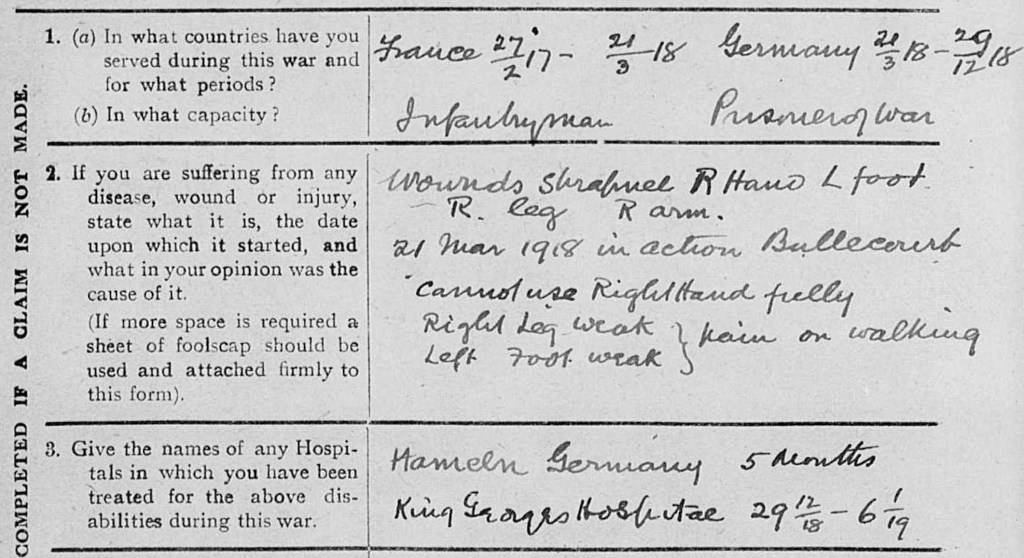 COMPLETED IF A CLAIM IS NOT MADE.
1. (a) In what countries have you
served during this war and
for what periods?
(b) In what capacity?
France 27/2 17 - 21/3 18 Germany 21/3 18 - 29/12 18
Infantryman Prisoner of War
2. If you are suffering from any
disease, wound or injury,
state what it is, the date
upon which it started, and
what in your opinion was the
cause of it.
(If more space is required a
sheet of foolscap should be
used and attached firmly to
this form).
Wounds Shrapnel R Hand L foot.
R. leg R arm.
21 Mar 1918 in action Bullecourt
Cannot use Right Hand fully
Right Leg weak } pain on walking
Left Foot weak
3. Give the names of any Hospi-
tals in which you have been
treated for the above dis-
abilities during this war.
Hameln Germany 5 Months
King Georges Hospital 29 12/18 - 6 1/19